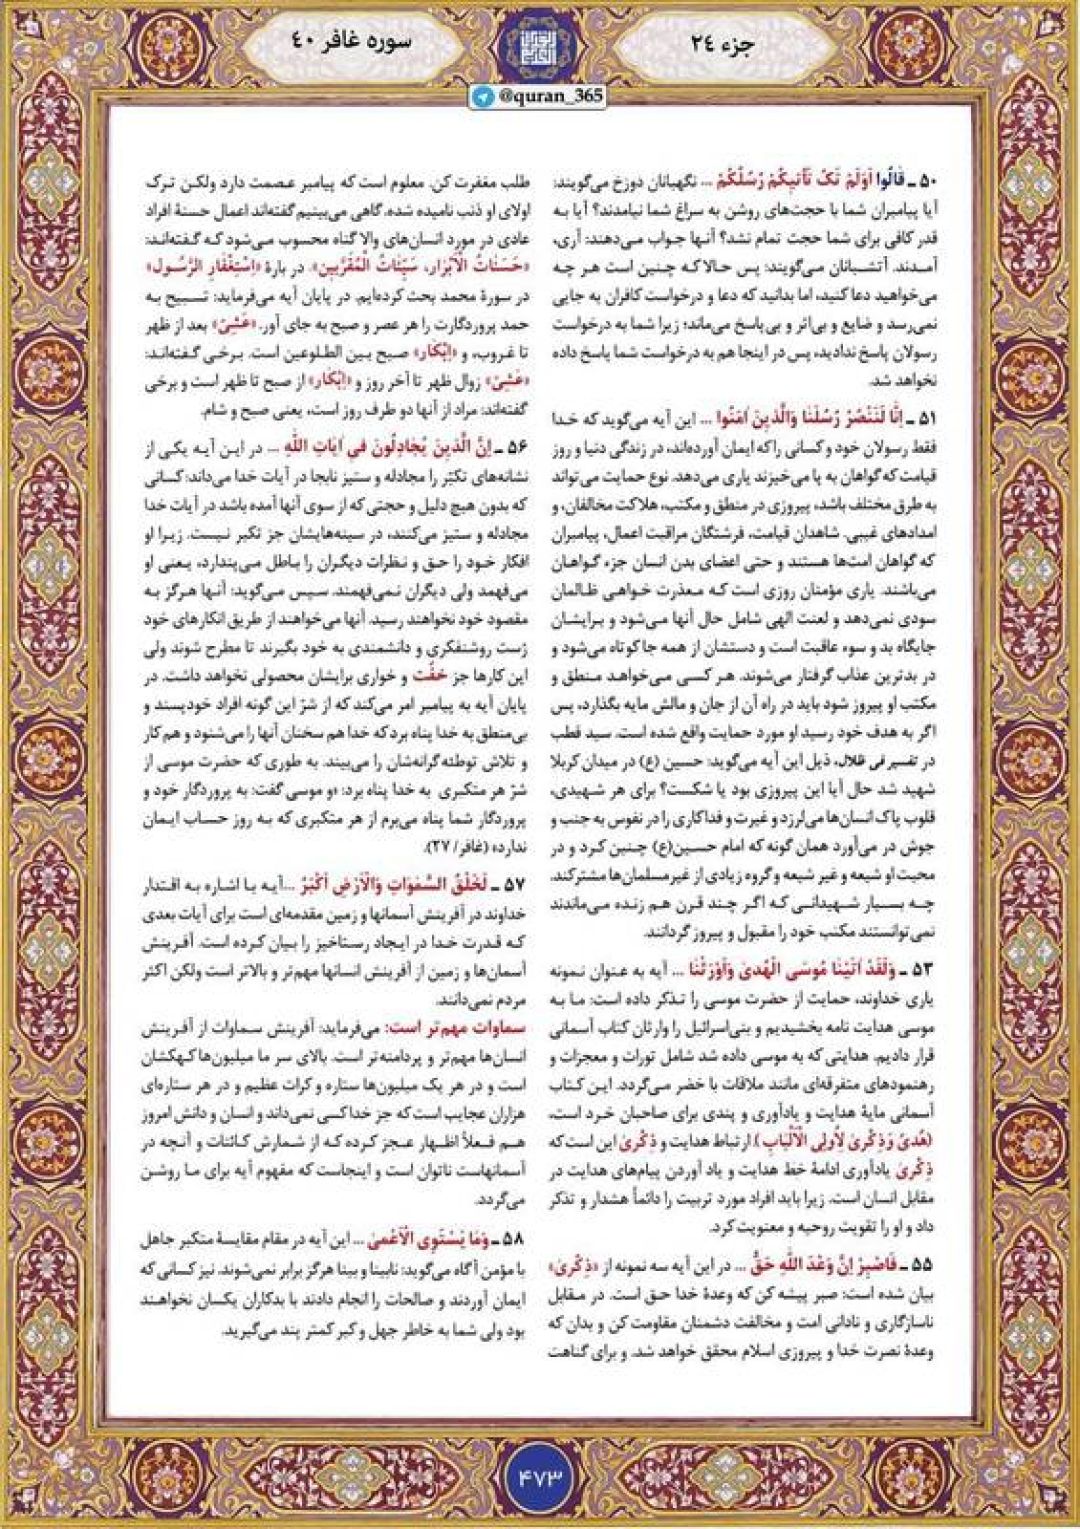 جزء ٢٤
سوره غافر ٤٠
@quran_365
۵۰ ـ قالُوا اَوَلَمْ تَکُ تَأتیکُمْ رُسُلُکُمْ ... نگهبانان دوزخ می‌گویند:
آیا پیامبران شما با حجت‌های روشن به سراغ شما نیامدند؟ آیا به
قدر کافی برای شما حجت تمام نشد؟ آنها جواب می‌دهند: آری،
آمدند. آتشبانان می‌گویند: پس حالا که چنین است هر چه
می‌خواهید دعا کنید، اما بدانید که دعا و درخواست کافران به جایی
نمی‌رسد و ضایع و بی‌اثر و بی‌پاسخ می‌ماند؛ زیرا شما به درخواست
رسولان پاسخ ندادید، پس در اینجا هم به درخواست شما پاسخ داده
نخواهد شد.
۵۱ ـ اِنّا لَنَنْصُرُ رُسُلَنا وَالَّذینَ امَنُوا ... این آیه می‌گوید که خدا
فقط رسولان خود و کسانی را که ایمان آورده‌اند، در زندگی دنیا و روز
قیامت که گواهان به پا می‌خیزند یاری می‌دهد. نوع حمایت می‌تواند
به طرق مختلف باشد، پیروزی در منطق و مکتب، هلاکت مخالفان، و
امدادهای غیبی. شاهدان قیامت، فرشتگان مراقبت اعمال، پیامبران
که گواهان امت‌ها هستند و حتی اعضای بدن انسان جزء گواهان
می‌باشند. یاری مؤمنان روزی است که معذرت خواهی ظالمان
سودی نمی‌دهد و لعنت الهی شامل حال آنها می‌شود و برایشان
جایگاه بد و سوء عاقبت است و دستشان از همه جا کوتاه می‌شود و
در بدترین عذاب گرفتار می‌شوند. هر کسی می‌خواهد منطق و
مکتب او پیروز شود باید در راه آن از جان و مالش مایه بگذارد، پس
اگر به هدف خود رسید او مورد حمایت واقع شده است. سید قطب
در تفسیر فی ظلال، ذیل این آیه می‌گوید: حسین (ع) در میدان کربلا
شهید شد حال آیا این پیروزی بود یا شکست؟ برای هر شهیدی،
قلوب پاک انسان‌ها می‌لرزد و غیرت و فداکاری را در نفوس به جنب و
جوش در می‌آورد همان گونه که امام حسین(ع) چنین کرد و در
محبت او شیعه و غیر شیعه و گروه زیادی از غیرمسلمان‌ها مشترکند.
چه بسیار شهیدانی که اگر چند قرن هم زنده می‌ماندند
نمی‌توانستند مکتب خود را مقبول و پیروز گردانند.
۵۳ ـ وَلَقَدْ اتَیْنا مُوسَی الْهُدی وَاَوْرَثْنا ... آیه به عنوان نمونه
یاری خداوند، حمایت از حضرت موسی را تذکر داده است: ما به
موسی هدایت نامه بخشیدیم و بنی‌اسرائیل را وارثان کتاب آسمانی
قرار دادیم. هدایتی که به موسی داده شد شامل تورات و معجزات و
رهنمودهای متفرقه‌ای مانند ملاقات با خضر می‌گردد. این کتاب
آسمانی مایهٔ هدایت و یادآوری و پندی برای صاحبان خرد است.
(هُدیً وَ ذِکْری لِاُولِی الْاَلْبابِ). ارتباط هدایت و ذِکْری این است که
ذِکْری یادآوری ادامهٔ خط هدایت و یاد آوردن پیام‌های هدایت در
مقابل انسان است. زیرا باید افراد مورد تربیت را دائماً هشدار و تذکر
داد و او را تقویت روحیه و معنویت کرد.
۵۵ ـ فَاصْبِرْ اِنَّ وَعْدَ اللّهِ حَقٌّ ... در این آیه سه نمونه از «ذِکْری»
بیان شده است: صبر پیشه کن که وعدهٔ خدا حق است. در مقابل
ناسازگاری و نادانی امت و مخالفت دشمنان مقاومت کن و بدان که
وعدهٔ نصرت خدا و پیروزی اسلام محقق خواهد شد. و برای گناهت
طلب مغفرت کن. معلوم است که پیامبر عصمت دارد ولکن ترک
اولای او ذنب نامیده شده. گاهی می‌بینیم گفته‌اند اعمال حسنهٔ افراد
عادی در مورد انسان‌های والا گناه محسوب می‌شود که گفته‌اند:
«حَسَناتُ الْاَبْرار، سَیِّئاتُ الْمُقَرَّبین». در بارهٔ «اِسْتِغْفارِ الرَّسُول»
در سورهٔ محمد بحث کرده‌ایم. در پایان آیه می‌فرماید: تسبیح به
حمد پروردگارت را هر عصر و صبح به جای آور. «عَشِیّ» بعد از ظهر
تا غروب، و «اِبْکار» صبح بین الطلوعین است. برخی گفته‌اند:
«عَشِیّ» زوال ظهر تا آخر روز و «اِبْکار» از صبح تا ظهر است و برخی
گفته‌اند: مراد از آنها دو طرف روز است، یعنی صبح و شام.
۵۶ ـ اِنَّ الَّذینَ یُجادِلُونَ فی ایاتِ اللّهِ ... در این آیه یکی از
نشانه‌های تکبّر را مجادله و ستیز نابجا در آیات خدا می‌داند: کسانی
که بدون هیچ دلیل و حجتی که از سوی آنها آمده باشد در آیات خدا
مجادله و ستیز می‌کنند، در سینه‌هایشان جز تکبر نیست. زیرا او
افکار خود را حق و نظرات دیگران را باطل می‌پندارد، یعنی او
می‌فهمد ولی دیگران نمی‌فهمند. سپس می‌گوید: آنها هرگز به
مقصود خود نخواهند رسید. آنها می‌خواهند از طریق انکارهای خود
ژست روشنفکری و دانشمندی به خود بگیرند تا مطرح شوند ولی
این کارها جز خفّت و خواری برایشان محصولی نخواهد داشت. در
پایان آیه به پیامبر امر می‌کند که از شرّ این گونه افراد خودپسند و
بی‌منطق به خدا پناه برد که خدا هم سخنان آنها را می‌شنود و هم کار
و تلاش توطئه گرانه‌شان را می‌بیند. به طوری که حضرت موسی از
شرّ هر متکبری به خدا پناه برد: «و موسی گفت: به پروردگار خود و
پروردگار شما پناه می‌برم از هر متکبری که به روز حساب ایمان
ندارد» (غافر/ ۲۷).
۵۷ ـ لَخَلْقُ السَّمواتِ وَالْاَرْضِ اَکْبَرُ ...آیه با اشاره به اقتدار
خداوند در آفرینش آسمانها و زمین مقدمه‌ای است برای آیات بعدی
که قدرت خدا در ایجاد رستاخیز را بیان کرده است. آفرینش
آسمان‌ها و زمین از آفرینش انسانها مهم‌تر و بالاتر است ولکن اکثر
مردم نمی‌دانند.
سماوات مهم‌تر است: می‌فرماید: آفرینش سماوات از آفرینش
انسان‌ها مهم‌تر و پردامنه‌تر است. بالای سر ما میلیون‌ها کهکشان
است و در هر یک میلیون‌ها ستاره و کرات عظیم و در هر ستاره‌ای
هزاران عجایب است که جز خدا کسی نمی‌داند و انسان و دانش امروز
هم فعلاً اظهار عجز کرده که از شمارش کائنات و آنچه در
آسمانهاست ناتوان است و اینجاست که مفهوم آیه برای ما روشن
می‌گردد.
۵۸ ـ وَما یَسْتَوِی الْاَعْمی ... این آیه در مقام مقایسهٔ متکبر جاهل
با مؤمن آگاه می‌گوید: نابینا و بینا هرگز برابر نمی‌شوند. نیز کسانی که
ایمان آوردند و صالحات را انجام دادند با بدکاران یکسان نخواهند
بود ولی شما به خاطر جهل و کبر کمتر پند می‌گیرید.
۴۷۳